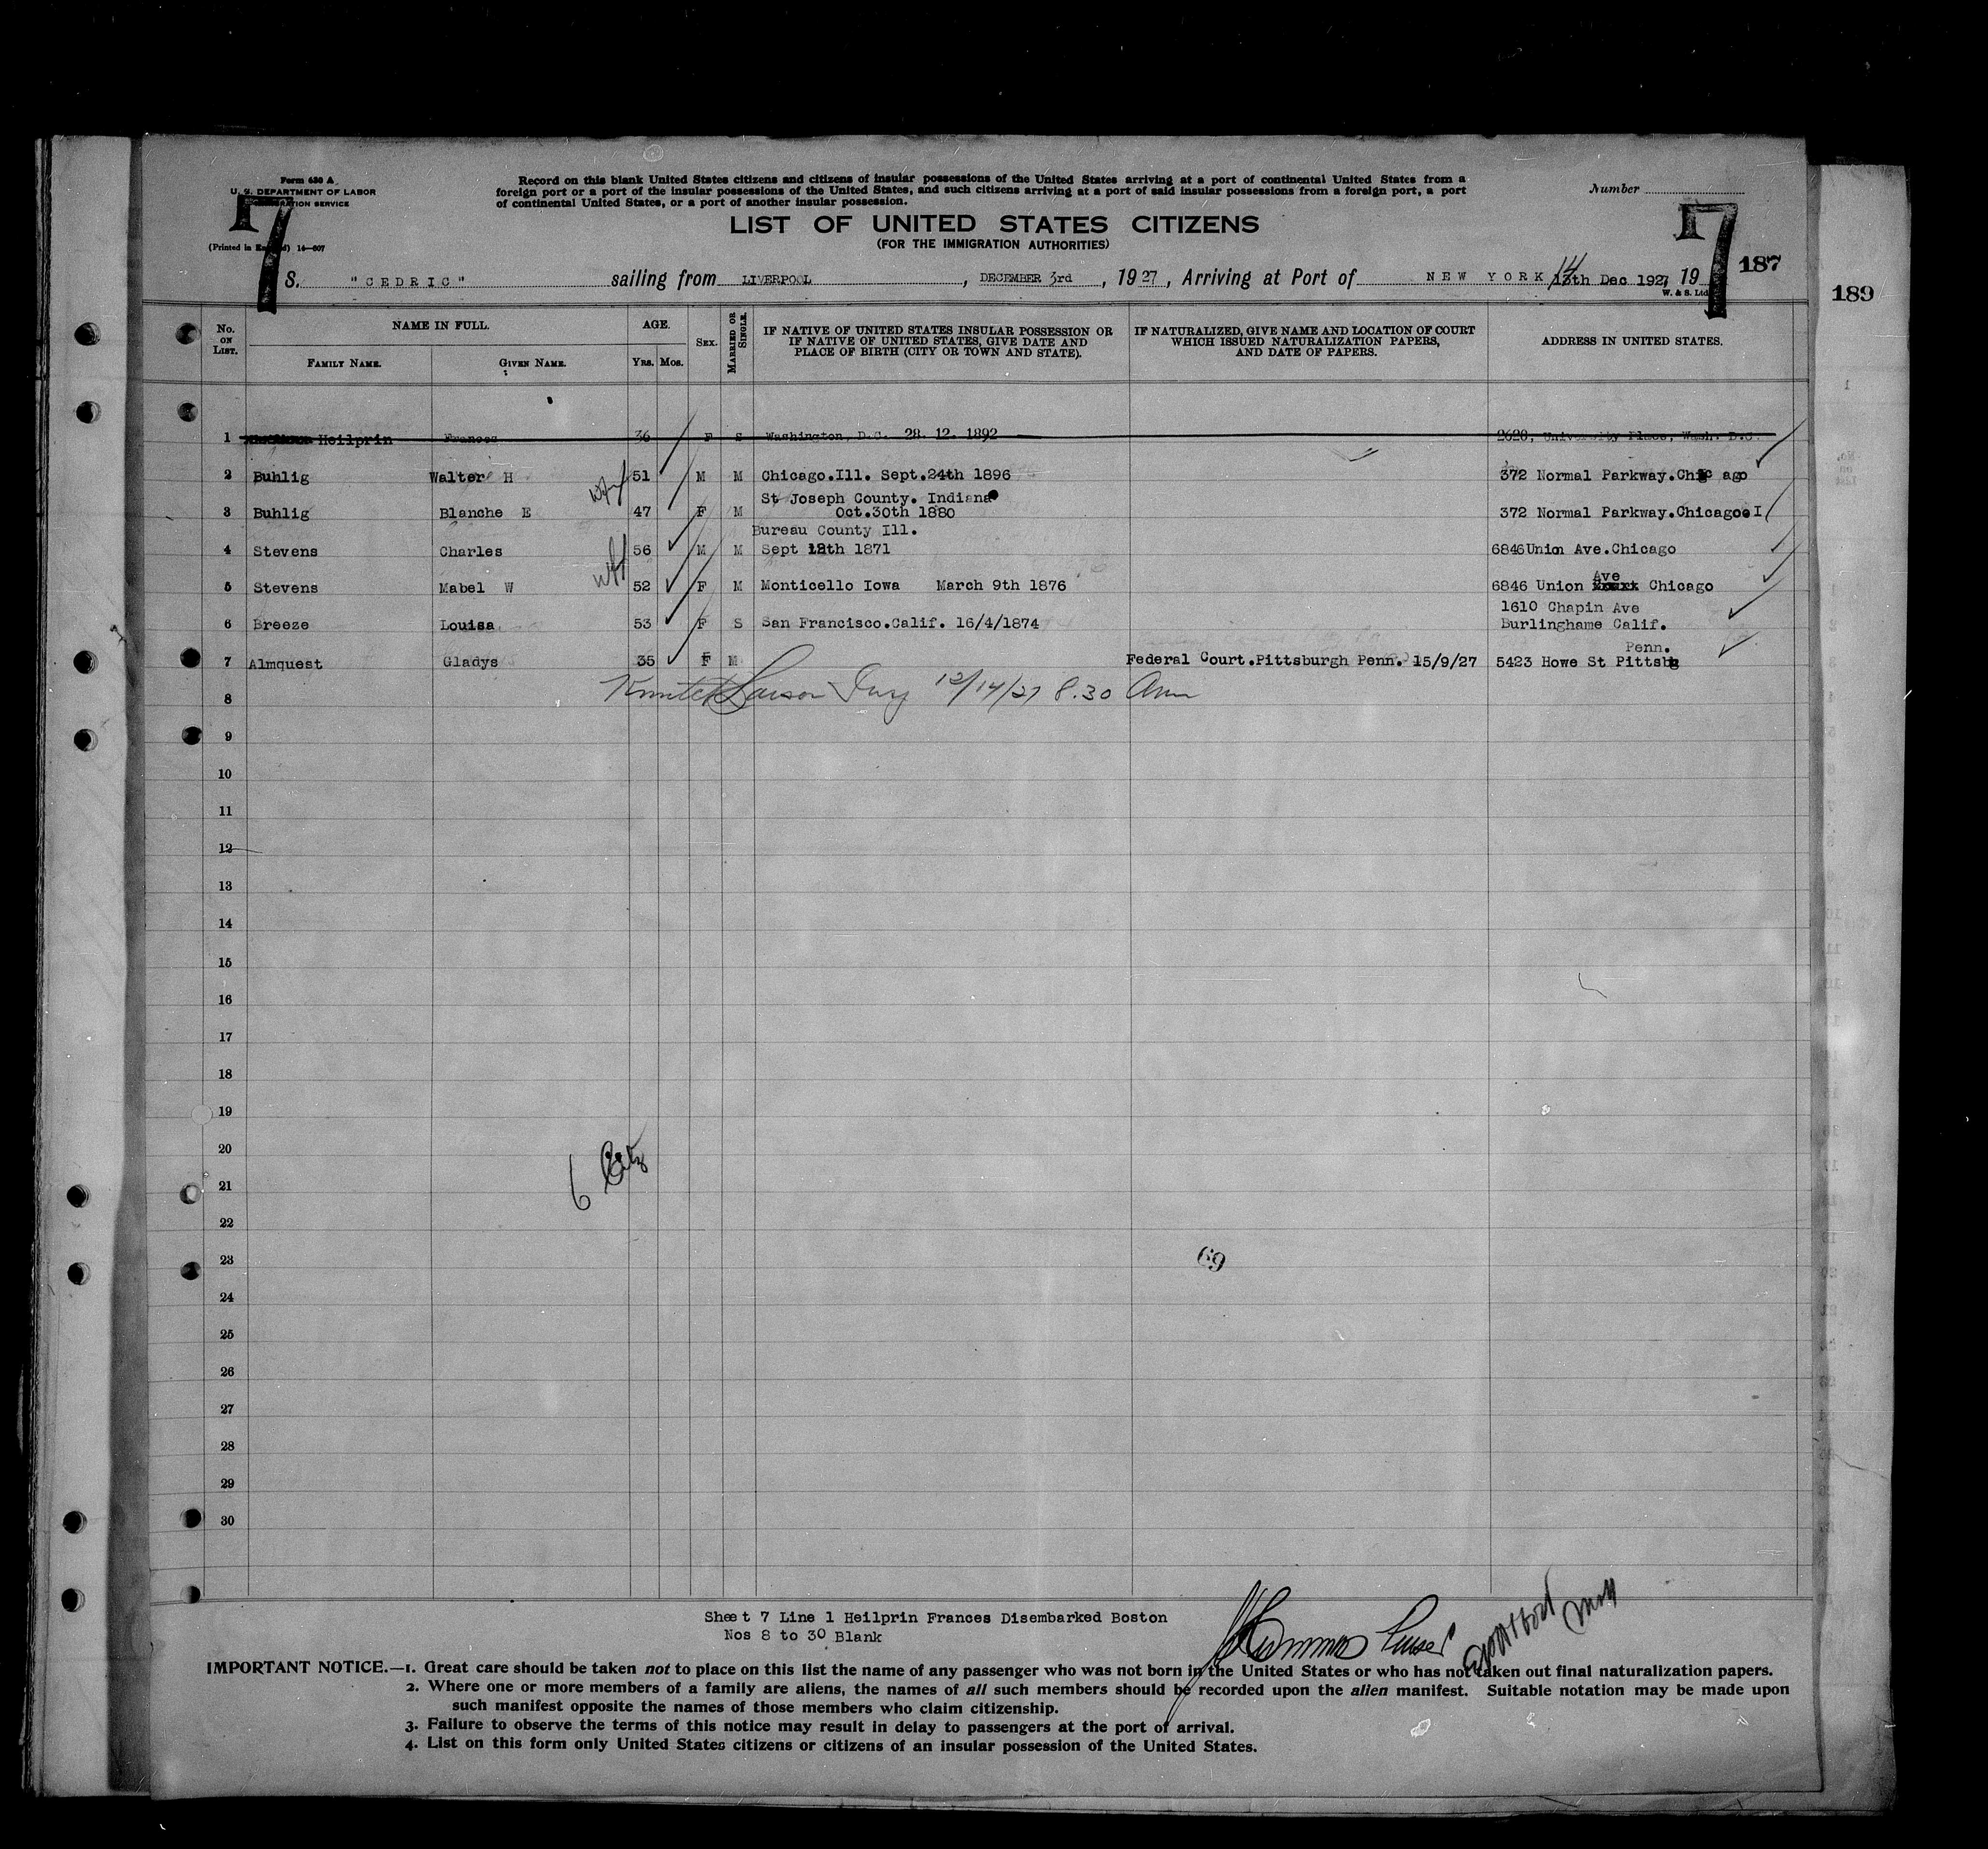 Form 630 A
U. S. DEPARTMENT OF LABOR
IMMIGRATION SERVICE
(Printed in England) 14—607
Record on this blank United States citizens and citizens of insular possessions of the United States arriving at a port of continental United States from a
foreign port or a port of the insular possessions of the United States, and such citizens arriving at a port of said insular possessions from a foreign port, a port
of continental United States, or a port of another insular possession.
Number
LIST OF UNITED STATES CITIZENS
(FOR THE IMMIGRATION AUTHORITIES)
7
7
187
189
S. "CEDRIC" sailing from LIVERPOOL, DECEMBER 3rd, 1927, Arriving at Port of NEW YORK 14 13th Dec 1927, 19
W. & S. Ltd
No. ON LIST.
NAME IN FULL.
FAMILY NAME. GIVEN NAME.
AGE.
YRS. MOS.
SEX.
MARRIED OR SINGLE.
IF NATIVE OF UNITED STATES INSULAR POSSESSION OR
IF NATIVE OF UNITED STATES, GIVE DATE AND
PLACE OF BIRTH (CITY OR TOWN AND STATE).
IF NATURALIZED, GIVE NAME AND LOCATION OF COURT
WHICH ISSUED NATURALIZATION PAPERS,
AND DATE OF PAPERS.
ADDRESS IN UNITED STATES.
1 Heilprin Frances 36 F S Washington, D.C. 28. 12. 1892 2620, University Place, Wash. D.C.
2 Buhlig Walter H 51 M M Chicago.Ill. Sept.24th 1896 372 Normal Parkway.Chic ago
St Joseph County. Indiana
3 Buhlig Blanche E 47 F M Oct.30th 1880 372 Normal Parkway.Chicago I
Bureau County Ill.
4 Stevens Charles 56 M M Sept 12th 1871 6846 Union Ave.Chicago
Ave
5 Stevens Mabel W 52 F M Monticello Iowa March 9th 1876 6846 Union Chicago
1610 Chapin Ave
6 Breeze Louisa 53 F S San Francisco.Calif. 16/4/1874 Burlinghame Calif.
Penn.
7 Almquest Gladys 35 F M Federal Court.Pittsburgh Penn. 15/9/27 5423 Howe St Pittsbg
12/14/27 8.30 Am
8
9
10
11
12
13
14
15
16
17
18
19
20
6 Citz
21
22
23
69
24
25
26
27
28
29
30
Sheet 7 Line 1 Heilprin Frances Disembarked Boston
Nos 8 to 30 Blank
IMPORTANT NOTICE.—1. Great care should be taken not to place on this list the name of any passenger who was not born in the United States or who has not taken out final naturalization papers.
2. Where one or more members of a family are aliens, the names of all such members should be recorded upon the alien manifest. Suitable notation may be made upon
such manifest opposite the names of those members who claim citizenship.
3. Failure to observe the terms of this notice may result in delay to passengers at the port of arrival.
4. List on this form only United States citizens or citizens of an insular possession of the United States.